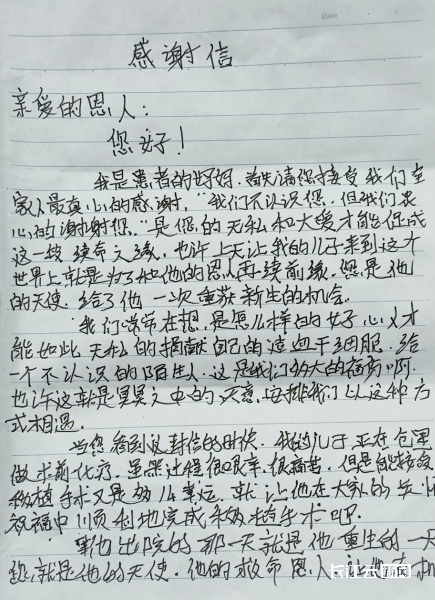 Date
感谢信
亲爱的恩人：
您好！
我是患者的妈妈，首先请您接受我们全
家人最真心的感谢，“我们不认识您，但我们衷
心的谢谢您，”是您的无私和大爱才能促成
这一段续命之缘，也许上天让我的儿子来到这个
世界上就是为了和他的恩人再续前缘，您是他
的天使，给了他一次重获新生的机会。
我们常常在想，是怎么样的好心人才
能如此无私的捐献自己的造血干细胞，给
一个不认识的陌生人，这是我们多大的福气啊，
也许这就是冥冥之中的天意，安排我们以这种方
式相遇。
当您看到这封信的时候，我的儿子正在仓里
做术前化疗，虽然过程很艰辛，很痛苦，但是能接受
移植手术又是多么幸运，就让他在大家的关怀
祝福中顺利地完成移植手术吧。
等他出院的那一天就是他重生的一天
您就是他的天使，他的救命恩人，让他有机
长江云新闻